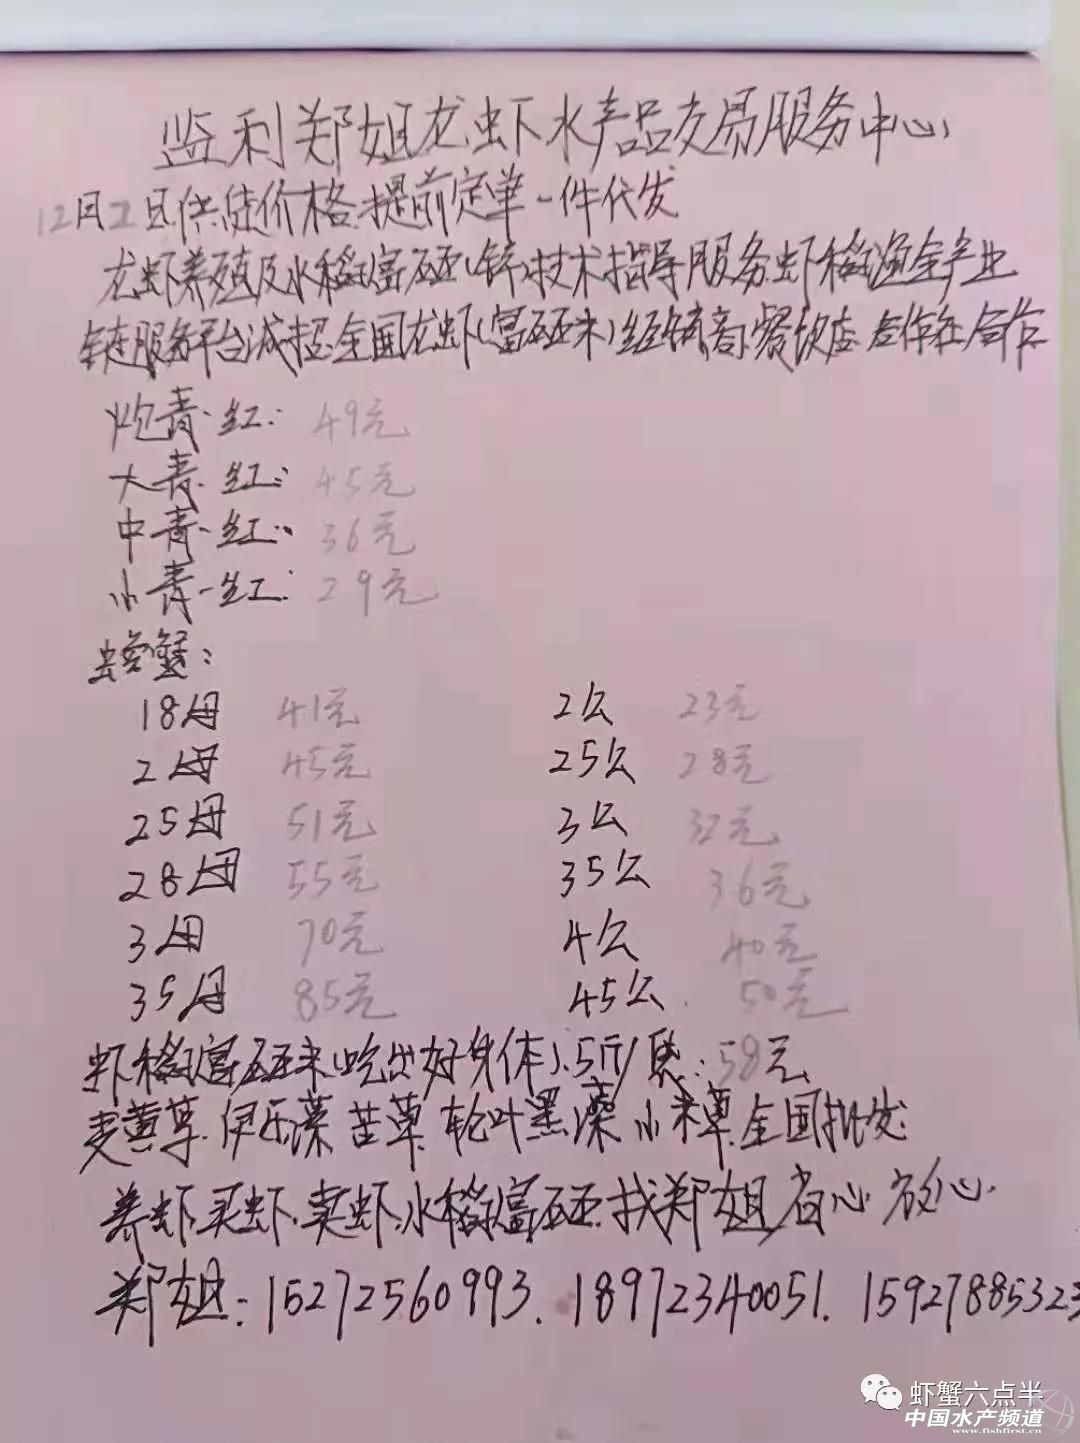 监利郑姐龙虾水产品交易服务中心
12月2日供货价格.提前定单一件代发
龙虾养殖及水稻富硒(锌)技术指导服务.虾稻渔全产业
链服务平台诚招.全国龙虾(富硒米)经销商.餐饮店.合作社.合作
炮青.红: 49元
大青.红: 45元
中青-红: 36元
小青-红: 29元
螃蟹:
18母 41元 2公 23元
2母 45元 25公 28元
25母 51元 3公 32元
28母 55元 35公 36元
3母 70元 4公 40元
35母 85元 45公 50元
虾稻富硒米(吃出好身体).5斤/袋:58元
麦黄草.伊乐藻.苦草.轮叶黑藻.小米草.全国批发
养虾.买虾.卖虾.水稻富硒.找郑姐.省心.放心.
郑姐:15272560993.18972340051.1592788532
虾蟹六点半
中国水产频道
www.fishfirst.cn